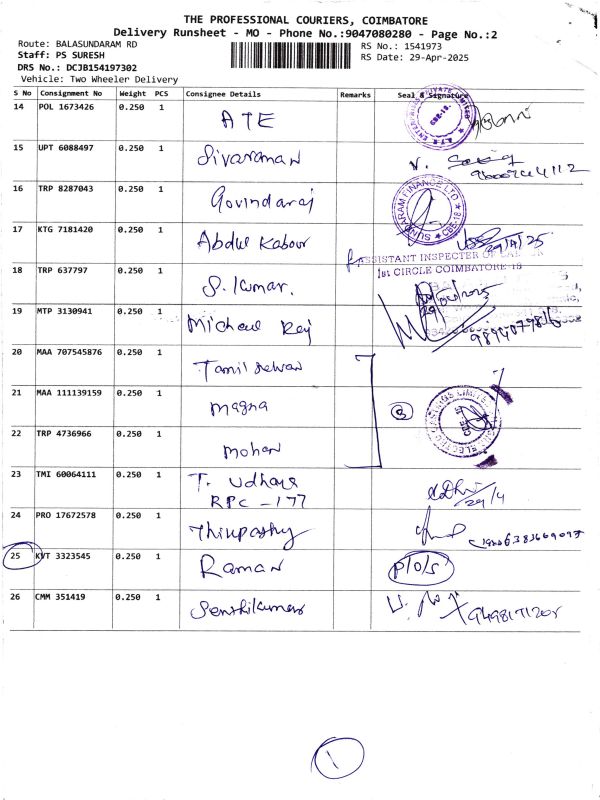 THE PROFESSIONAL COURIERS, COIMBATORE
Delivery Runsheet - MO - Phone No.:9047080280 - Page No.:2
Route: BALASUNDARAM RD
RS No.: 1541973
Staff: PS SURESH
RS Date: 29-Apr-2025
DRS No.: DCJB154197302
Vehicle: Two Wheeler Delivery
S No Consignment No Weight PCS Consignee Details Remarks Seal & Signature
14 POL 1673426 0.250 1 ATE
15 UPT 6088497 0.250 1 Sivaraman
16 TRP 8287043 0.250 1 Govindaraj
SUNDARAM FINANCE LTD CBE-18
17 KTG 7181420 0.250 1 Abdul Kaboor 29/4/25
ASSISTANT INSPECTER OF
1st CIRCLE COIMBATORE-18
18 TRP 637797 0.250 1 S. Kumar.
19 MTP 3130941 0.250 1 Michael Raj
20 MAA 707545876 0.250 1 Tamil selvan
21 MAA 111139159 0.250 1 Magna 3
22 TRP 4736966 0.250 1 Mohan
23 TMI 60064111 0.250 1 T. Udhaya
RPC - 177 29/4
24 PRO 17672578 0.250 1
25 KVT 3323545 0.250 1 Raman P/O/S
26 CMM 351419 0.250 1 Senthilkumar
1